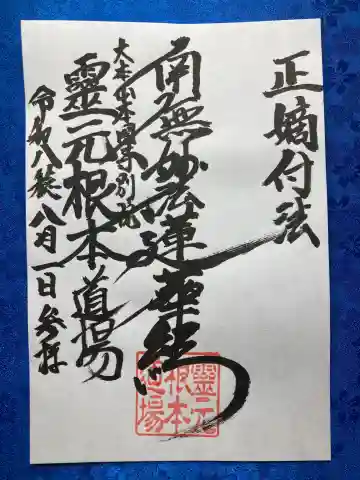 正嫡付法
南無妙法蓮華経
大本山本圀寺別院
靈元根本道場
令和八歳八月一日参拝
靈元
根本
道場